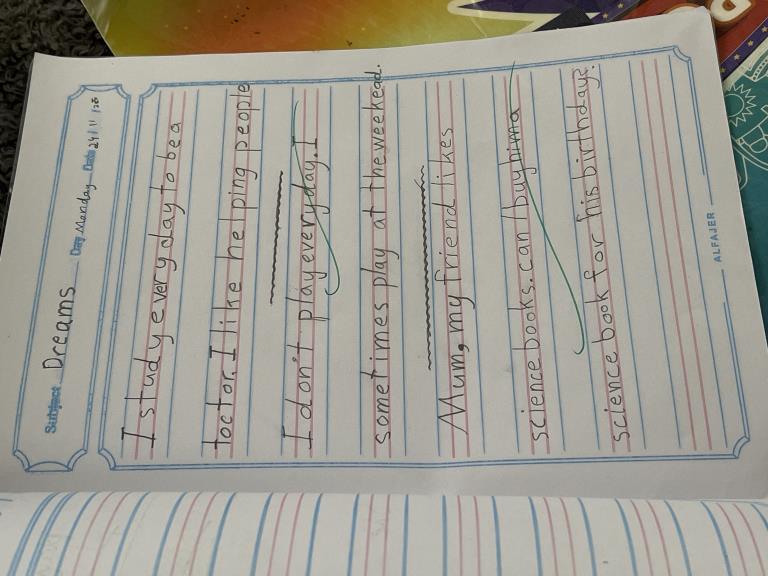 Subject Dreams Day Monday Date 24/11/25
I study everyday to be a
toctor. I like helping people
I don't play everyday. I
sometimes play at the weekead.
Mum, my friend likes
science books. can I buy him a
science book for his birthday?
ALFAJER